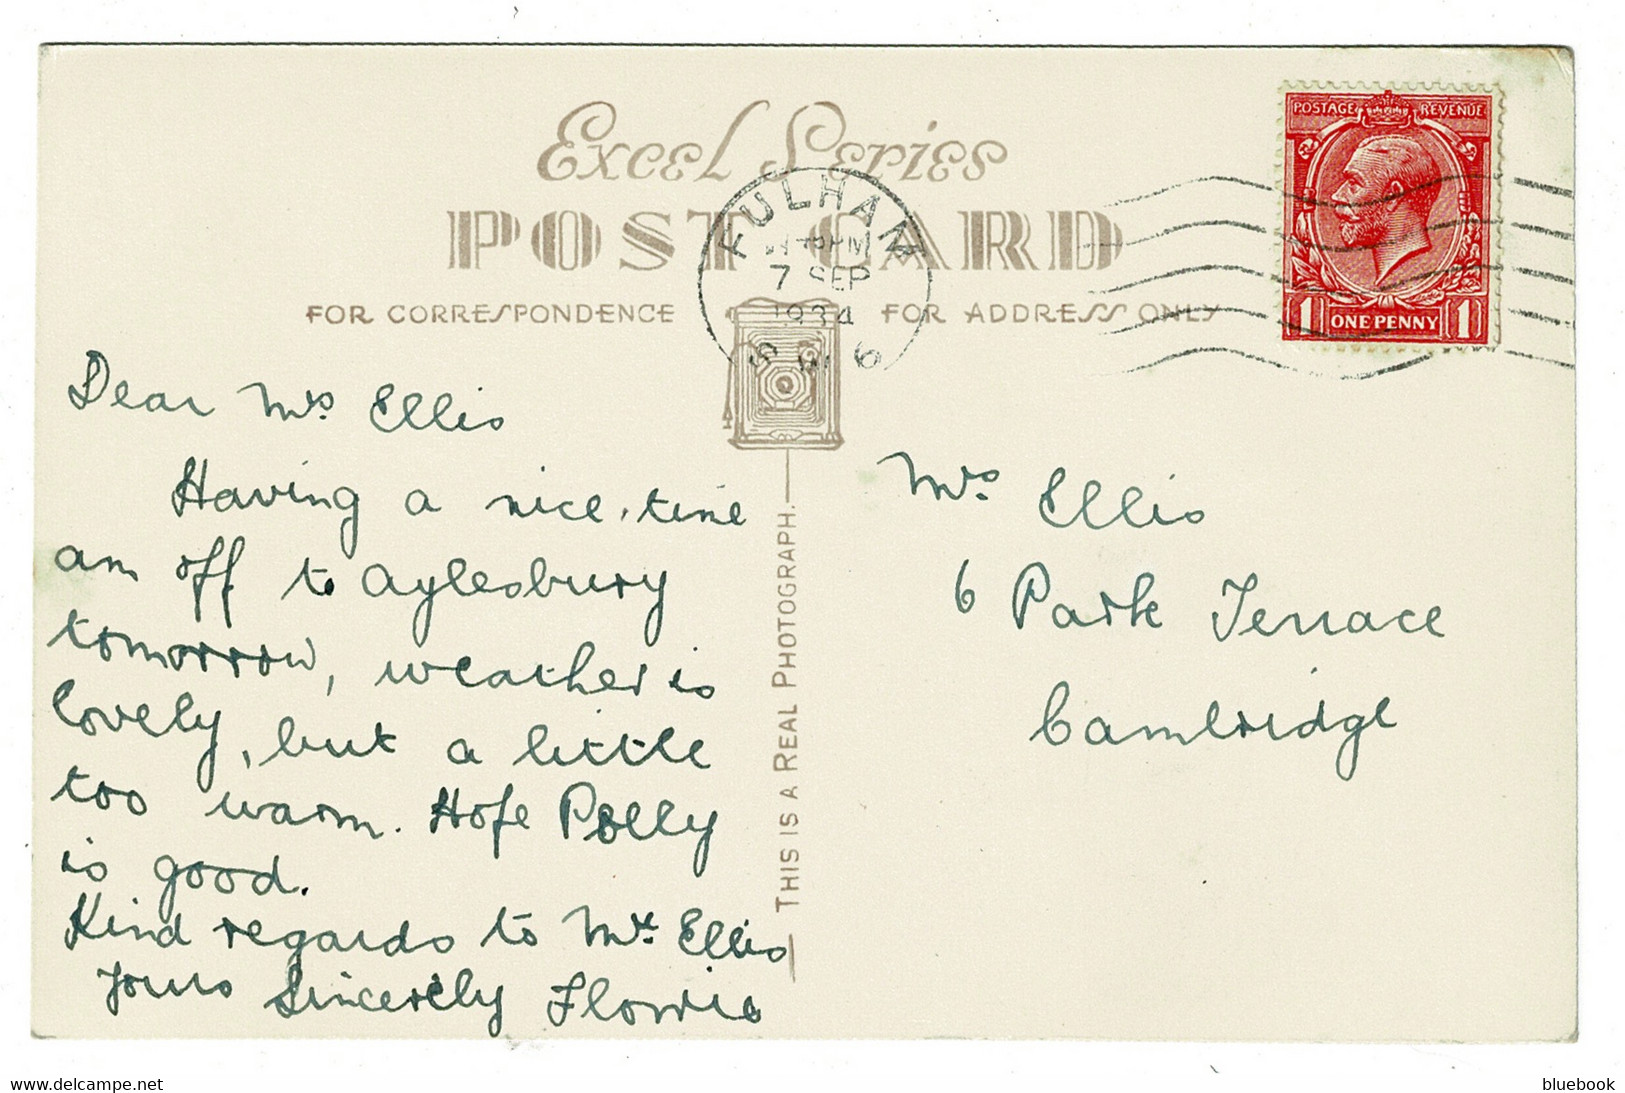 Excel Series
POST CARD
FOR CORRESPONDENCE
FOR ADDRESS ONLY
FULHAM
PM
7 SEP
1934
S W 6
POSTAGE REVENUE
1 ONE PENNY 1
Dear Mrs Ellis
Having a nice time
am off to Aylesbury
tomorrow, weather is
lovely, but a little
too warm. Hope Polly
is good.
Kind regards to Mr. Ellis
Yours Sincerely Florrie
THIS IS A REAL PHOTOGRAPH.
Mrs Ellis
6 Park Terrace
Cambridge
delcampe.net
bluebook